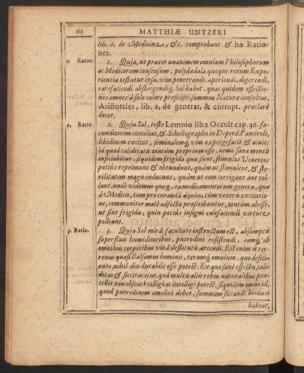 62 MATTHIÆ UNTZERI
lib. 2. de Medicina, &c. comprobant & hæ Rationes.
1. Ratio. 1. Quia, ut præter unanimem omnium Philosophorum
& Medicorum consensum, polydædala quoque rerum Experientia
testatur ipsa, vim penetrandi, aperiendi, digerendi,
rarefaciendi abstergendiq; Sal habet, quas quidem effectiones
omnes à solo calore proficisci summus Naturæ consultus,
Aristoteles, lib. 2. de generat. & corrupt. præclarè
docet.
2. Ratio. 2. Quia Sal, teste Lemnio lib. 2 Occult. cap. 46. fæcunditatem
conciliat, & Scholiographo in Deperd. Panciroli,
libidinem excitat, seminalemq; vim expergefacit &
id quod caliditatis tantum proprium esse, nemo sane mentis
inficiabitur, siquidem frigida quæ sunt, stimulos Venereos
potius reprimunt & obtundunt, quàm ut stimulent, & sterilitatem
magis inducunt, quàm ut eam corrigant aut tollant,
unde videmus quoq; ea medicamentorum genera, quæ
à Medicis, tum procurandæ
communiter
ut sint frigida, quin potius insigni calefaciendi virtute
polleant.
3. Ratio. 3. Quia Sal mira facultate instructum est, absumptis
superfluis humiditatibus, putredini resistendi, eamq; ab
omnibus corporibus vità destitutis arcendi. Est enim is rerum
quasi Balsamus hominis, rerumq; omnium, quo deficiente,
nihil diu durabile esse potest. Ex quo sane effectu, caliditas
& siccitas ejus
quidem omne id,
quod putredinem amoliri debet, summam siccandi
habeat,